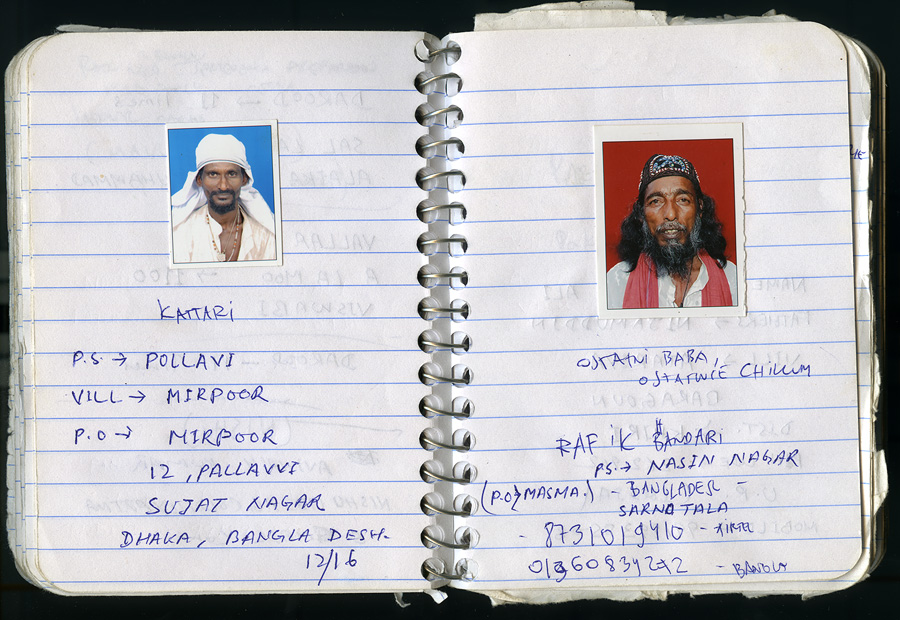 KATTARI
P.S. → POLLAVI
VILL → MIRPOOR
P.O → MIRPOOR
12, PALLAVVI
SUJAT NAGAR
DHAKA, BANGLA DESH.
12/16
OSTATNI BABA,
OSTATNIE CHILLUM
RAFIK BANDARI
PS. → NASIN NAGAR
(P.O → MASMA.) - BANGLADESH -
SARNATALA
- 8731019410 -
- BANGLA